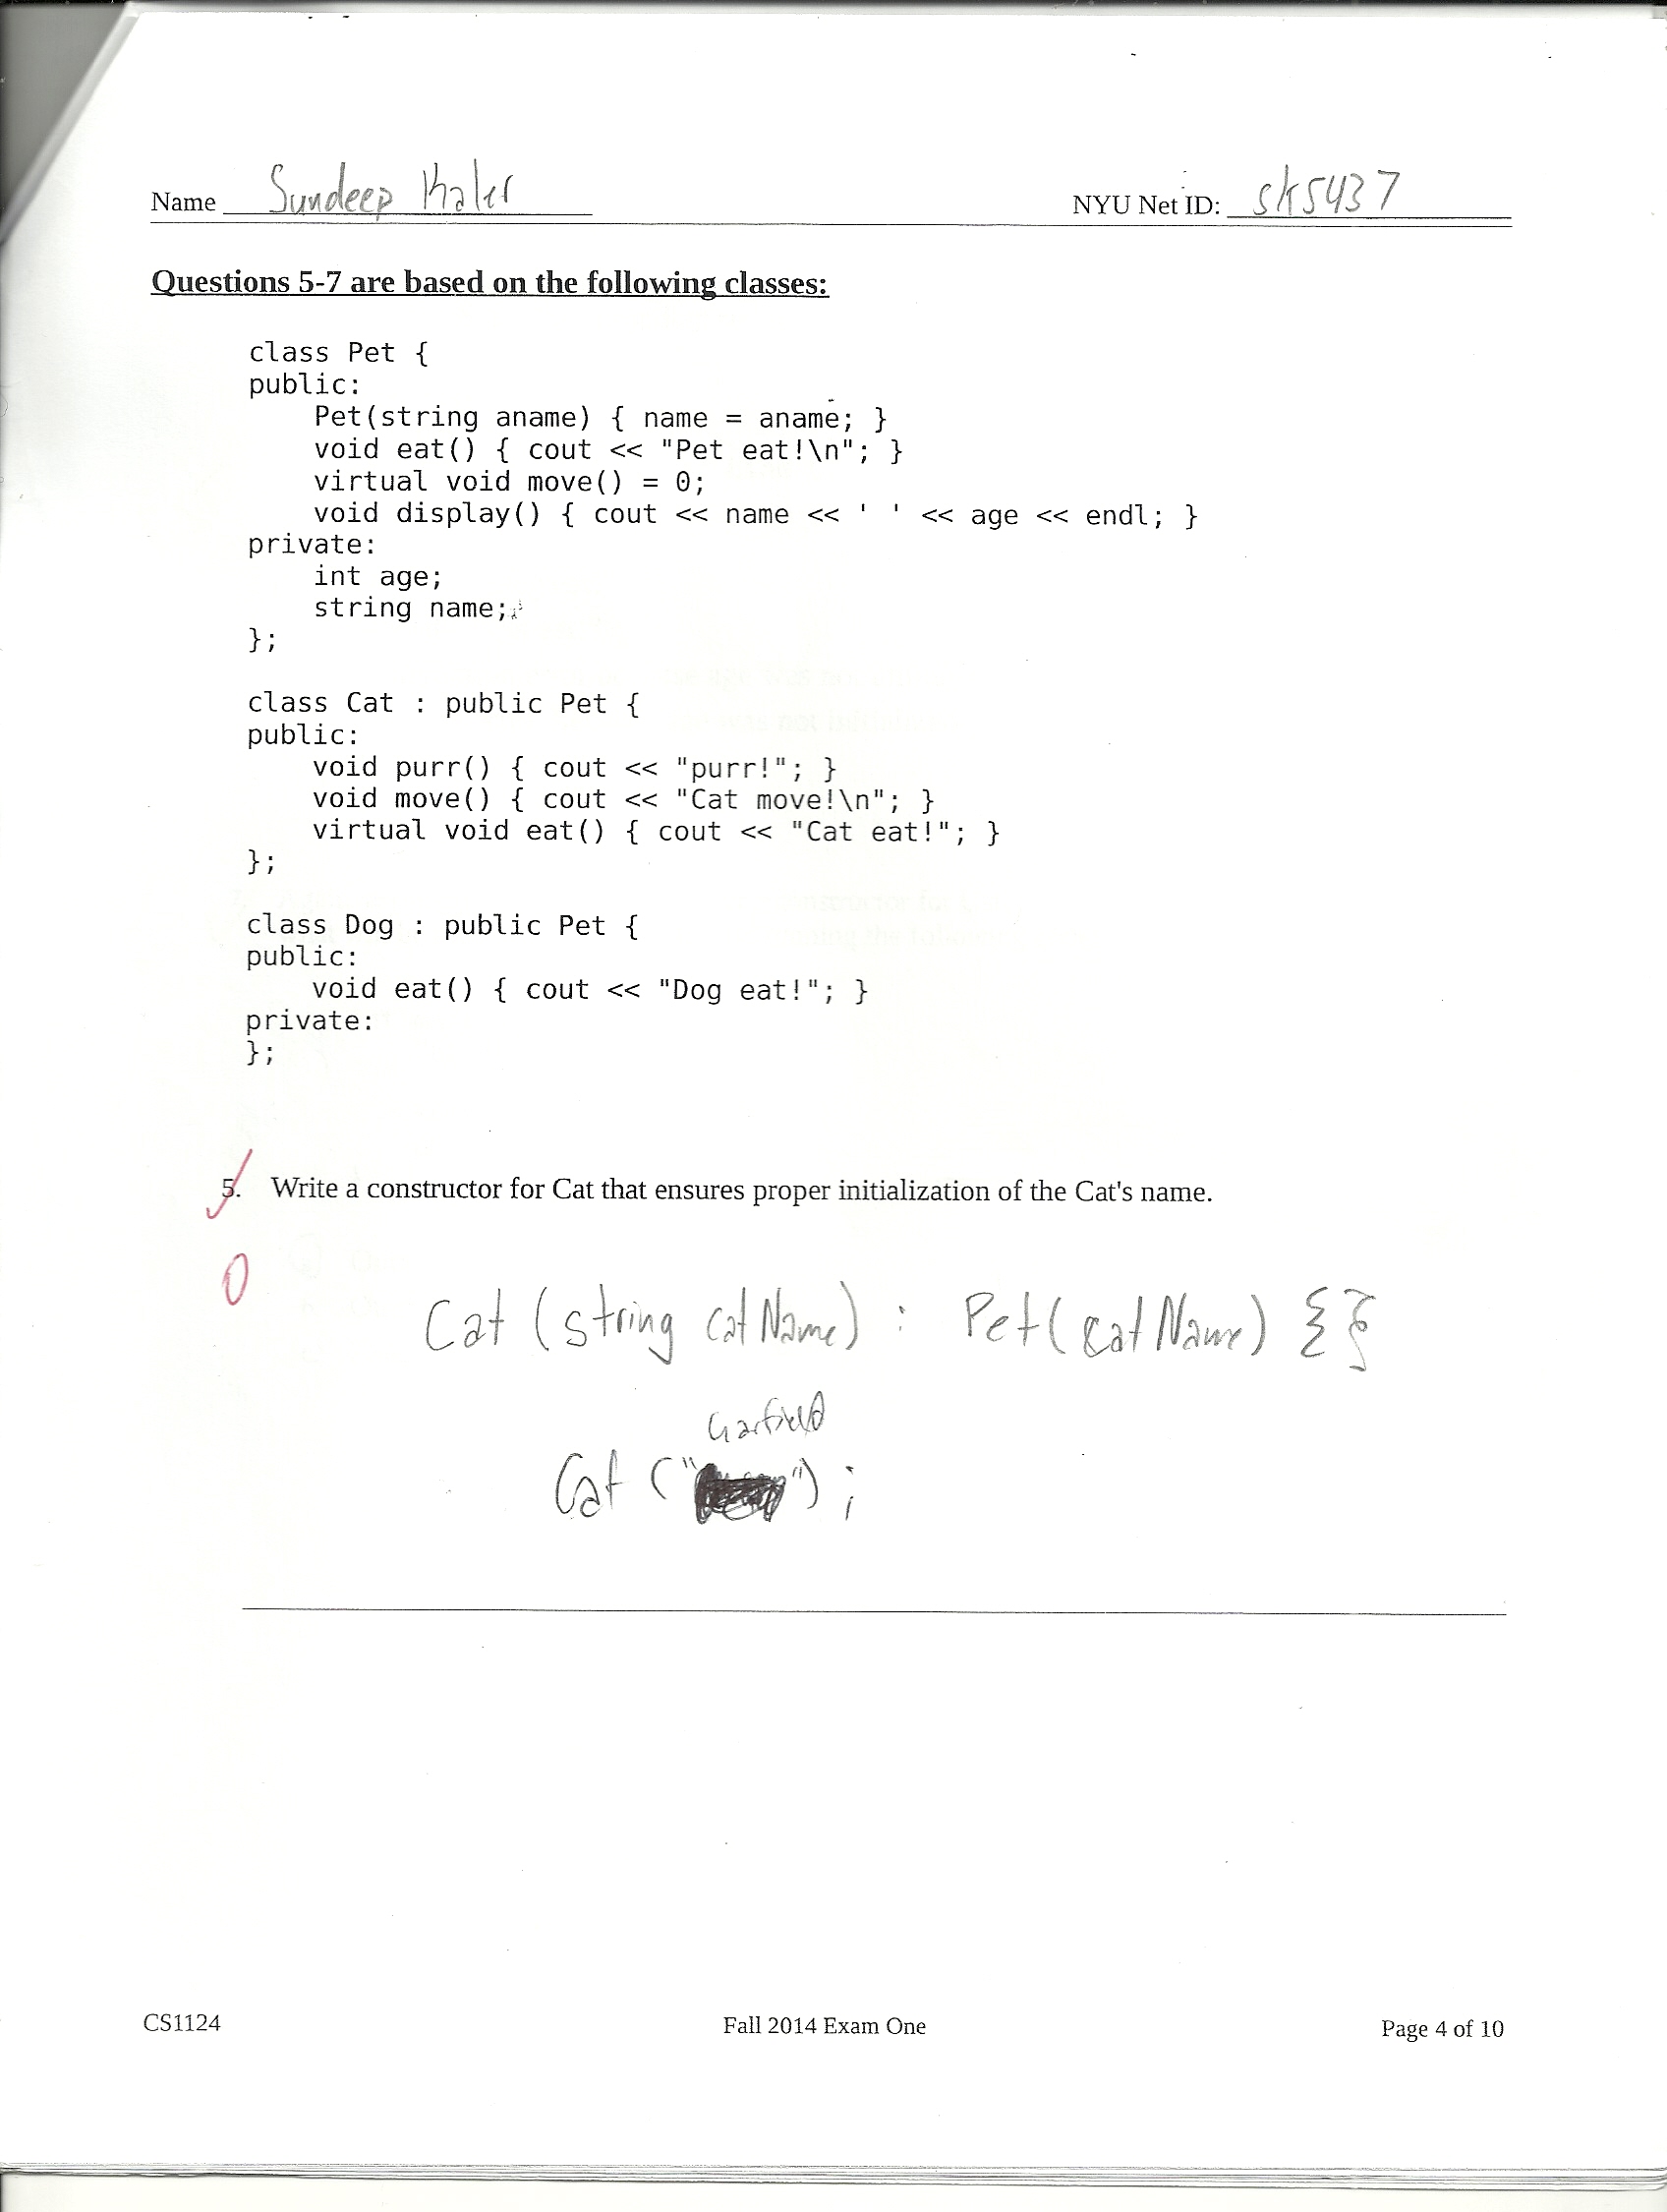 Name Sundeep Kaler NYU Net ID: sk5437
Questions 5-7 are based on the following classes:
class Pet {
public:
Pet(string aname) { name = aname; }
void eat() { cout << "Pet eat!\n"; }
virtual void move() = 0;
void display() { cout << name << ' ' << age << endl; }
private:
int age;
string name;
};
class Cat : public Pet {
public:
void purr() { cout << "purr!"; }
void move() { cout << "Cat move!\n"; }
virtual void eat() { cout << "Cat eat!"; }
};
class Dog : public Pet {
public:
void eat() { cout << "Dog eat!"; }
private:
};
5. Write a constructor for Cat that ensures proper initialization of the Cat's name.
0
Cat (string catName) : Pet(catName) {}
Garfield
Cat (" ");
CS1124 Fall 2014 Exam One Page 4 of 10